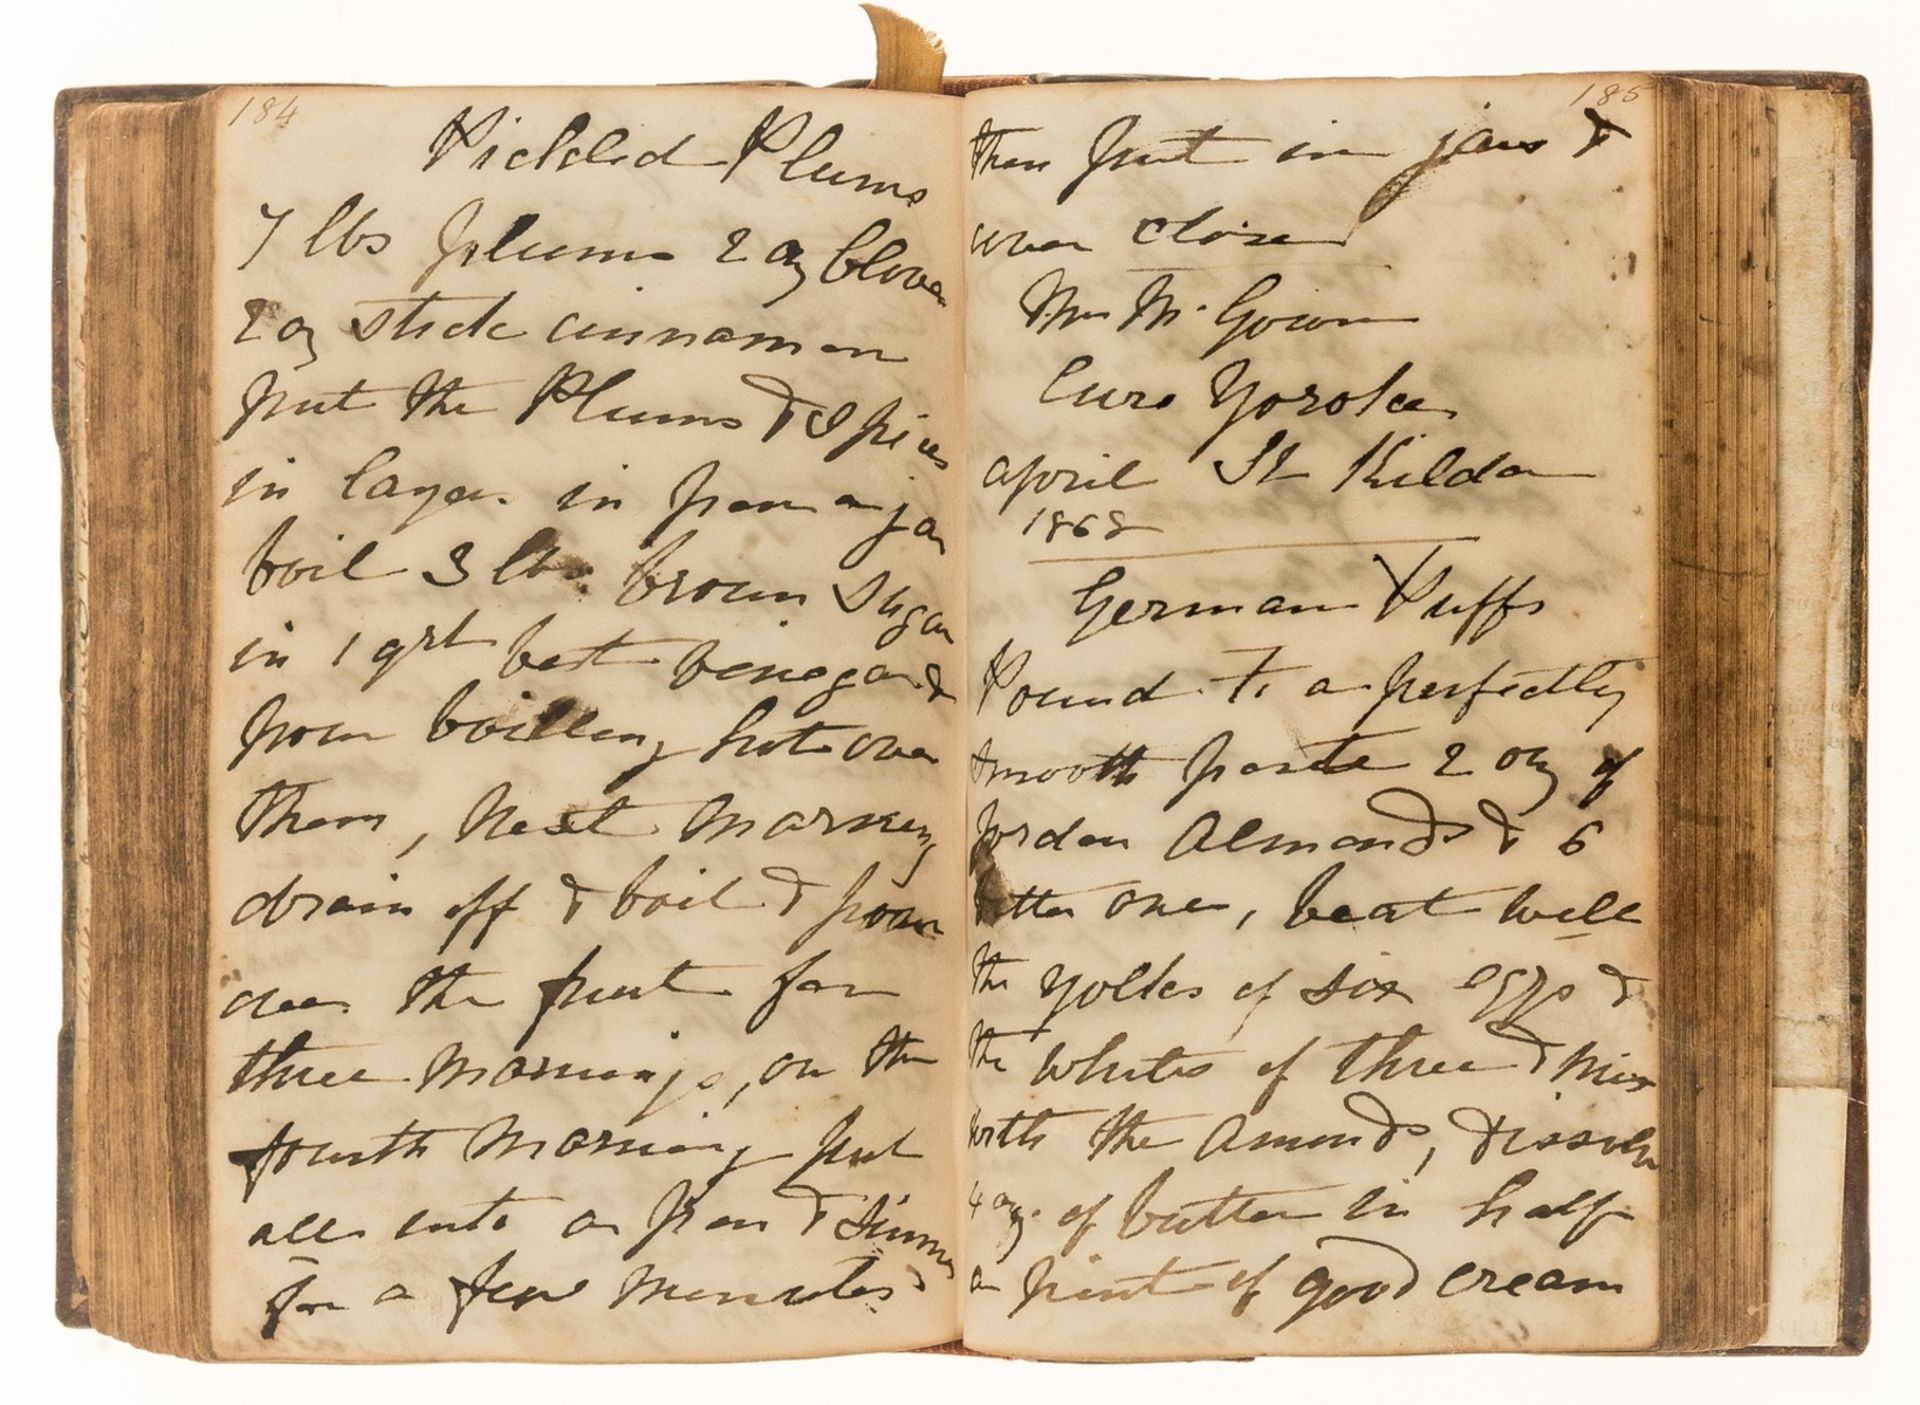 184
Pickled Plums
7 lbs plums 2 oz Cloves
2 oz stick cinnamon
put the Plums & Spices
in layers in pan or jar
boil 3 lbs brown Sugar
in 1 qrt best vinegar &
pour boilling hot over
them, Next morning
drain off & boil & pour
over the fruit for
three mornings, on the
fourth morning put
all into a pan & simmer
for a few minutes
185
then put in jars &
cover close
Mrs McGowan
Euro Yoroke
April St Kilda
1868
German Puffs
Pound to a perfectly
smooth paste 2 oz of
Jordan Almonds & 6
bitter one, beat well
the yolks of six eggs &
the whites of three & mix
with the Amonds, dissolve
4 oz. of butter in half
a pint of good cream